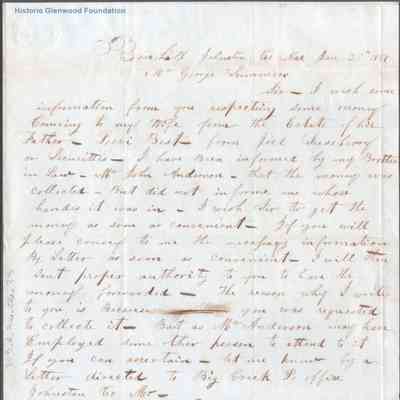 Historic Glenwood Foundation
Johnston Co
Mr George
Sir - I wish some
information from you respecting some money
Comeing to my Wife from the Estate of her
Father - Levi Best - from
or Securities - I have Been informed by my Brother
in Law - Mr John Anderson - that the money was
collected - But did not inform me whose
handes it was in - I wish Sir to get the
money as soon as convenient - If you will
please convey to me the necessary information
By Letter as soon as convenient - I will then
sent proper authority to you to have the
money forwarded - The reason why I write
to you is Because you was requested
to collect it - But as Mr Anderson may have
Employed some other person to attend to it
If you can ascertain - let me know by a
Letter directed to Big Creek P. office
Johnston Co Mo -